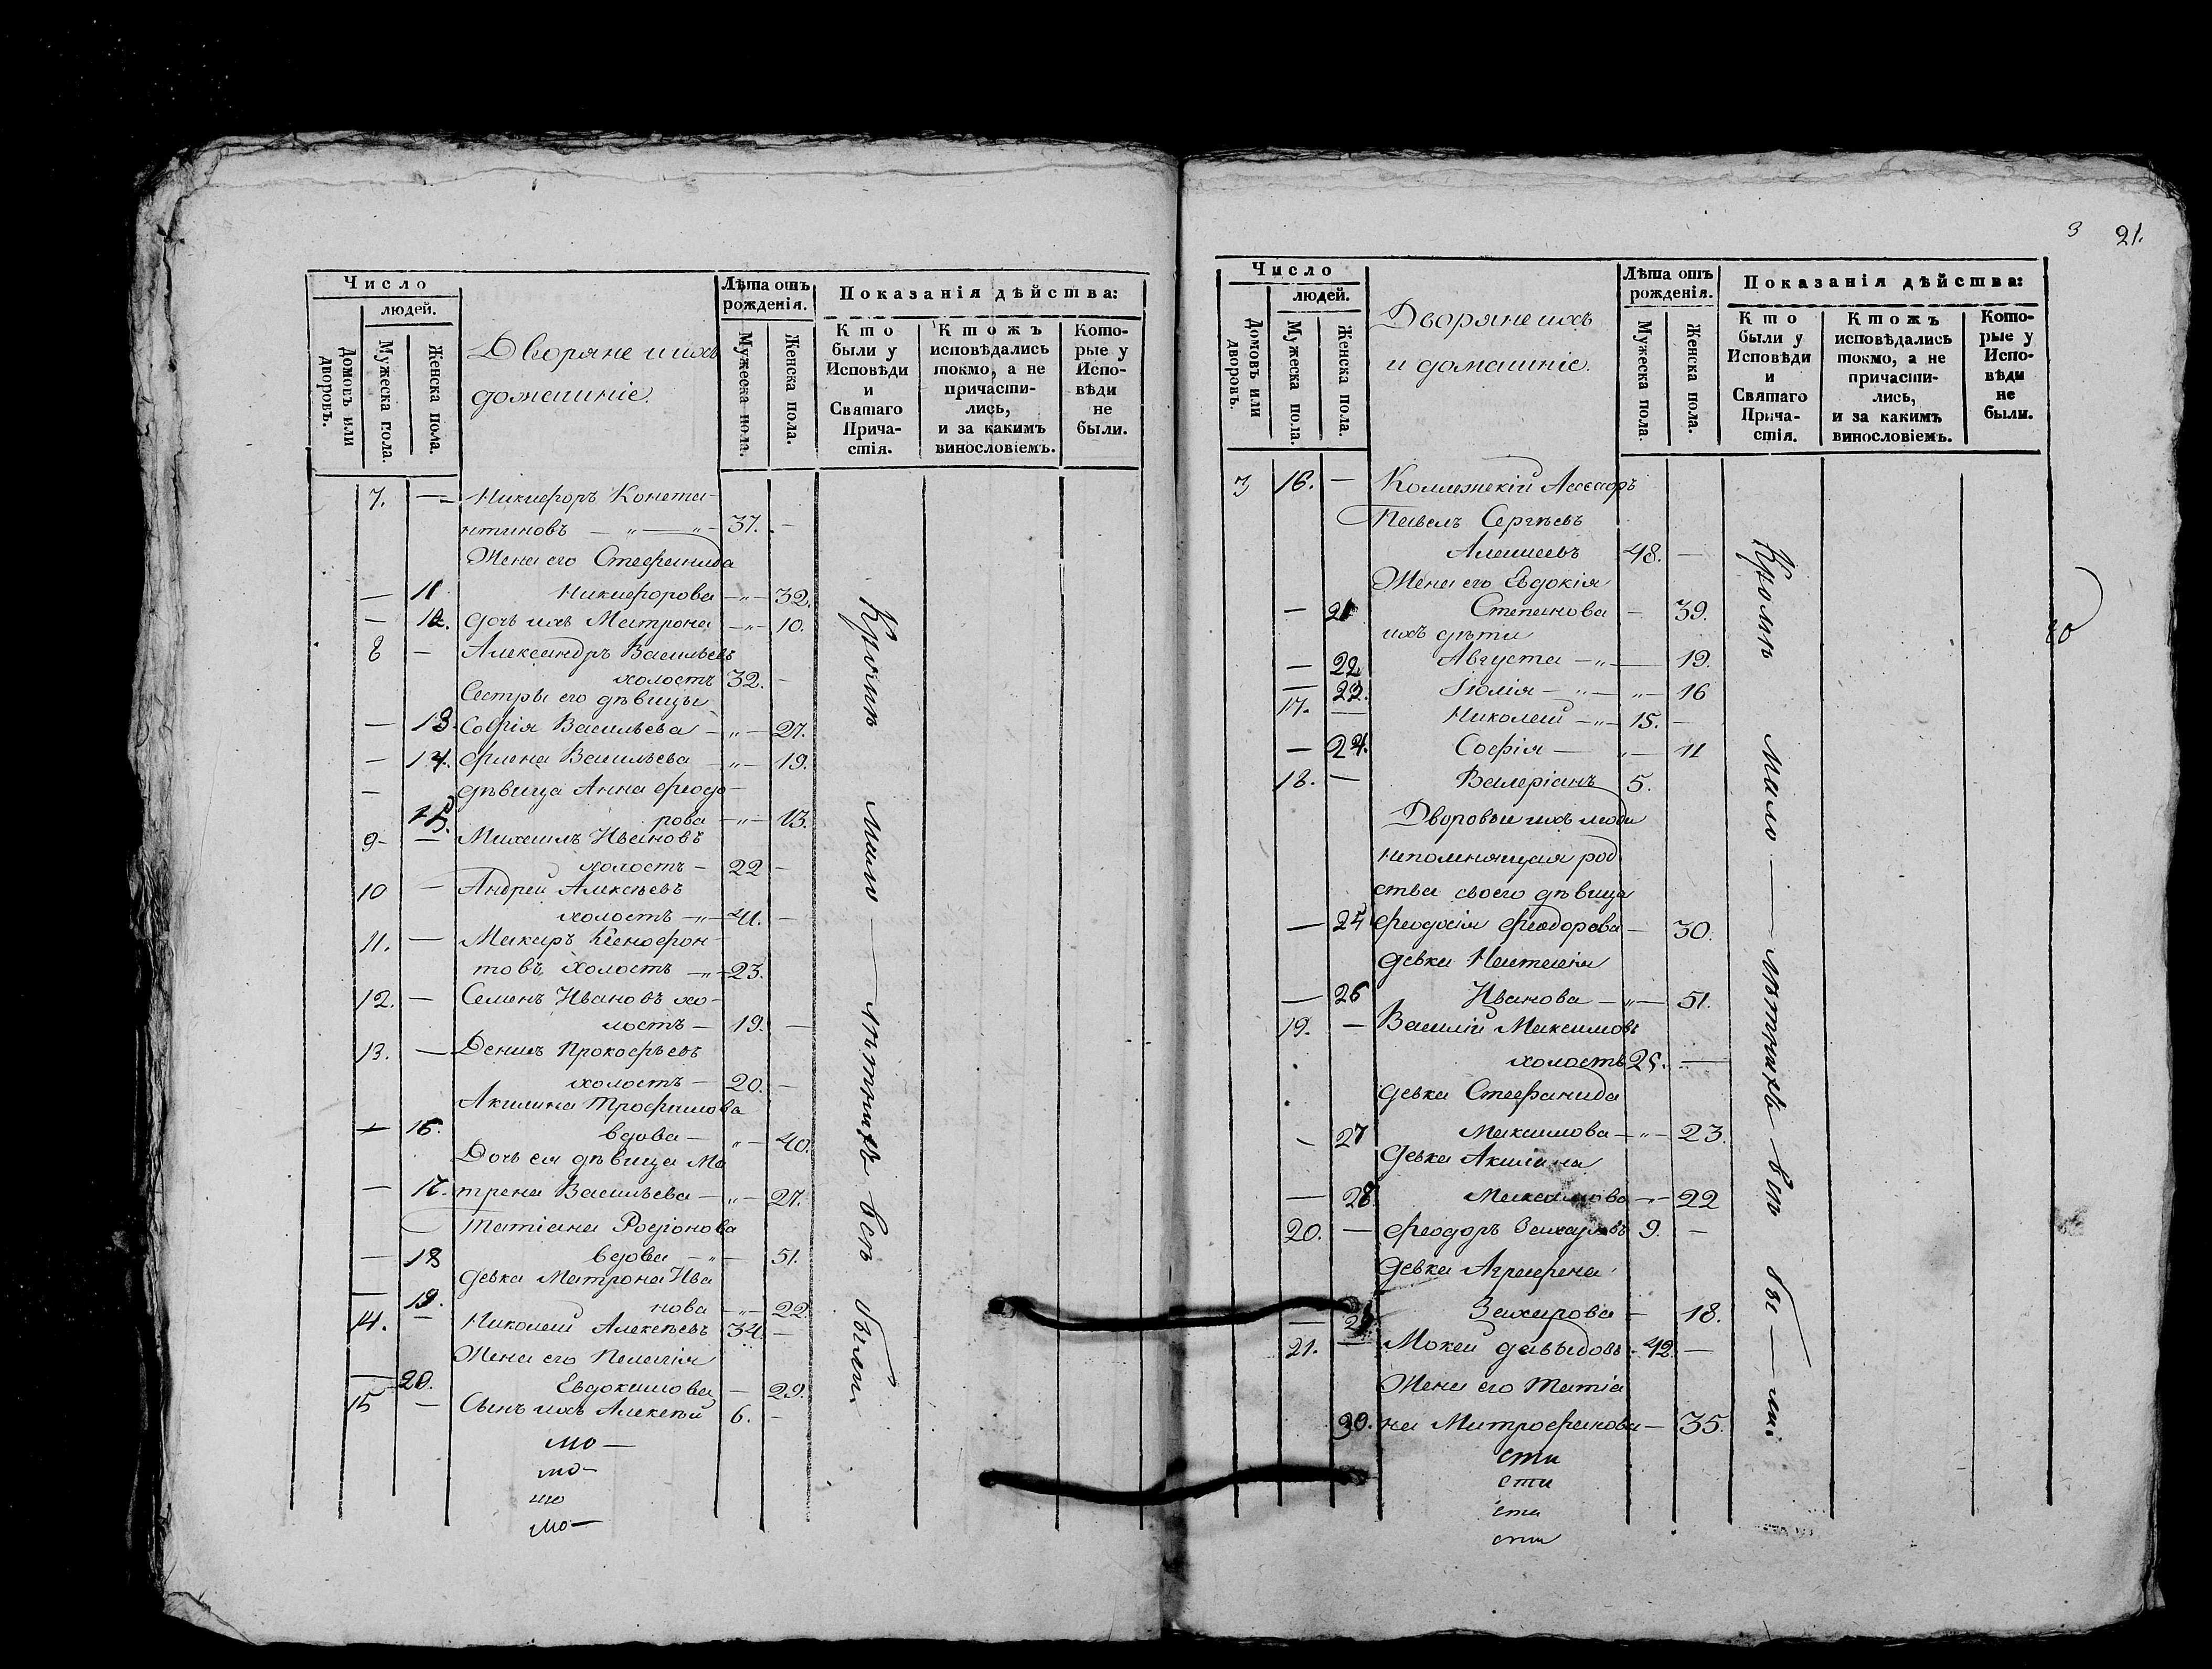 Число
людей.
Домовъ или дворовъ.
Мужеска пола.
Женска пола.
Дворяне и ихъ
домашніе.
Лѣта отъ
рожденія.
Мужеска пола.
Женска пола.
Показанія дѣйства:
Кто
были у
Исповѣди
и
Святаго
Прича-
стія.
Ктожъ
исповѣдались
токмо, а не
причасти-
лись,
и за какимъ
винословіемъ.
Кото-
рые у
Испо-
вѣди
не
были.
7. — Никифоръ Конста-
нтиновъ — „ — „ — 37. —
Жена его Стефанида
— 11 Никифорова — „ — 32.
— 12. дочь ихъ Матрона — „ — 10.
8 — Александръ Васильевъ
холостъ 32. —
Сестры его дѣвицы
— 13. Софія Васильева — „ — 27.
— 14. Фиена Васильева — „ — 19.
— дѣвица Анна Феодо-
15. рова — „ — 13.
9 — — Михаилъ Ивановъ
холостъ — 22 —
10 — Андрей Алексѣевъ
холостъ — „ — 41. —
11. — Макаръ Ксенофон-
товъ холостъ — „ — 23.
12. — Семенъ Ивановъ хо-
лостъ — 19. —
13. — Денисъ Прокофьевъ
холостъ — 20. —
Акилина Трофимова
— 16. вдова — „ — 40.
Дочь ея дѣвица Ма
— 17. трена Васильева — „ — 27.
Татіана Родіонова
— 18 вдова — „ — 51.
девка Матрона Ива
— 19. нова — „ — 22.
14. — Николай Алексѣевъ 34. —
Жена его Пелагія
— 20. Евдокимова — 29.
15 — Сынъ ихъ Алексѣй 6. —
Кромѣ мало — лѣтнихъ всѣ были
мо —
мо —
мо
мо —
3 21.
Число
людей.
Домовъ или дворовъ.
Мужеска пола.
Женска пола.
Дворяне ихъ
и домашніе.
Лѣта отъ
рожденія.
Мужеска пола.
Женска пола.
Показанія дѣйства:
Кто
были у
Исповѣди
и
Святаго
Прича-
стія.
Ктожъ
исповѣдались
токмо, а не
причасти-
лись,
и за какимъ
винословіемъ.
Кото-
рые у
Испо-
вѣди
не
были.
3 16. — Коллежскій Асесоръ
Павелъ Сергѣевъ
48. —
Жена его Евдокія
— 21 Степанова — 39.
ихъ дѣти
— 22 Августа — „ — 19.
— 23. Юлія — „ — „ — 16
17. — Николай — „ — 15. —
— 24. Софія — „ — 11
18. — Валеріанъ 5.
Дворовые ихъ люди
непомнящая род
ства своего дѣвица
— 25 Феодосія Феодорова — 30.
девка Наталія
— 26 Иванова — „ — 51.
19. — Василій Максимовъ
холостъ 25. —
девка Стефанида
— 27 Максимова — „ — 23.
девка Акилина
— 28. Максимова — „ — 22
20. — Феодоръ Захаровъ 9. —
девка Агрефена
— 29 Захарова — 18.
21. — Мокей Давыдовъ 42. —
Жена его Татіа
30. на Митрофанова — 35.
Кромѣ мало — лѣтнихъ всѣ бы — ли.
сти
сти
сти
сти